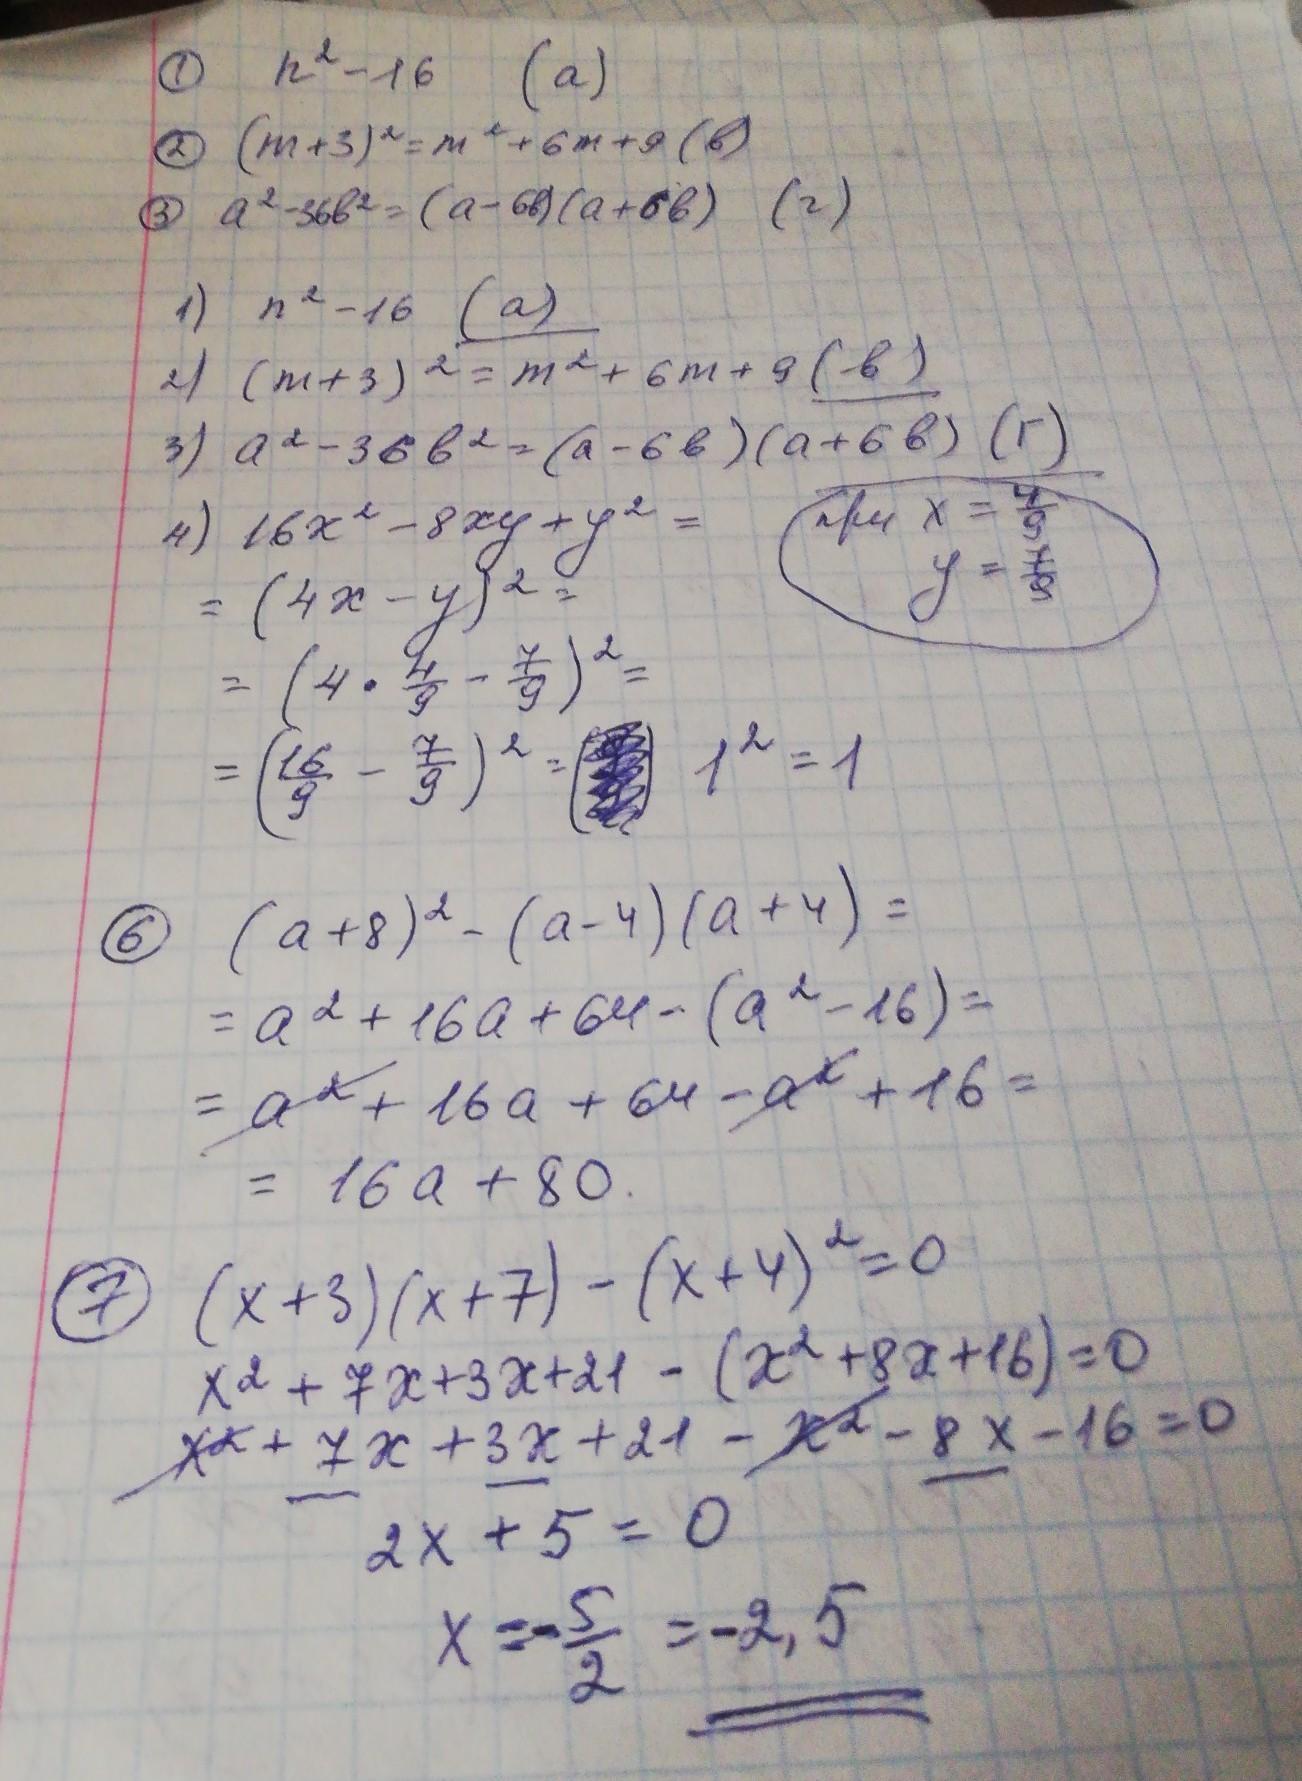 ① n² - 16 (а)
② (m+3)² = m² + 6m + 9 (в)
③ a² - 36b² = (a - 6b)(a + 6b) (г)
1) n² - 16 (а)
2) (m+3)² = m² + 6m + 9 (в)
3) a² - 36b² = (a - 6b)(a + 6b) (г)
4) 16x² - 8xy + y² = при x = 4/9
y = 7/9
= (4x - y)² =
= (4 · 4/9 - 7/9)² =
= (16/9 - 7/9)² = ( ) 1² = 1
⑥ (a+8)² - (a-4)(a+4) =
= a² + 16a + 64 - (a² - 16) =
= a² + 16a + 64 - a² + 16 =
= 16a + 80.
⑦ (x+3)(x+7) - (x+4)² = 0
x² + 7x + 3x + 21 - (x² + 8x + 16) = 0
x² + 7x + 3x + 21 - x² - 8x - 16 = 0
2x + 5 = 0
x = -5/2 = -2,5